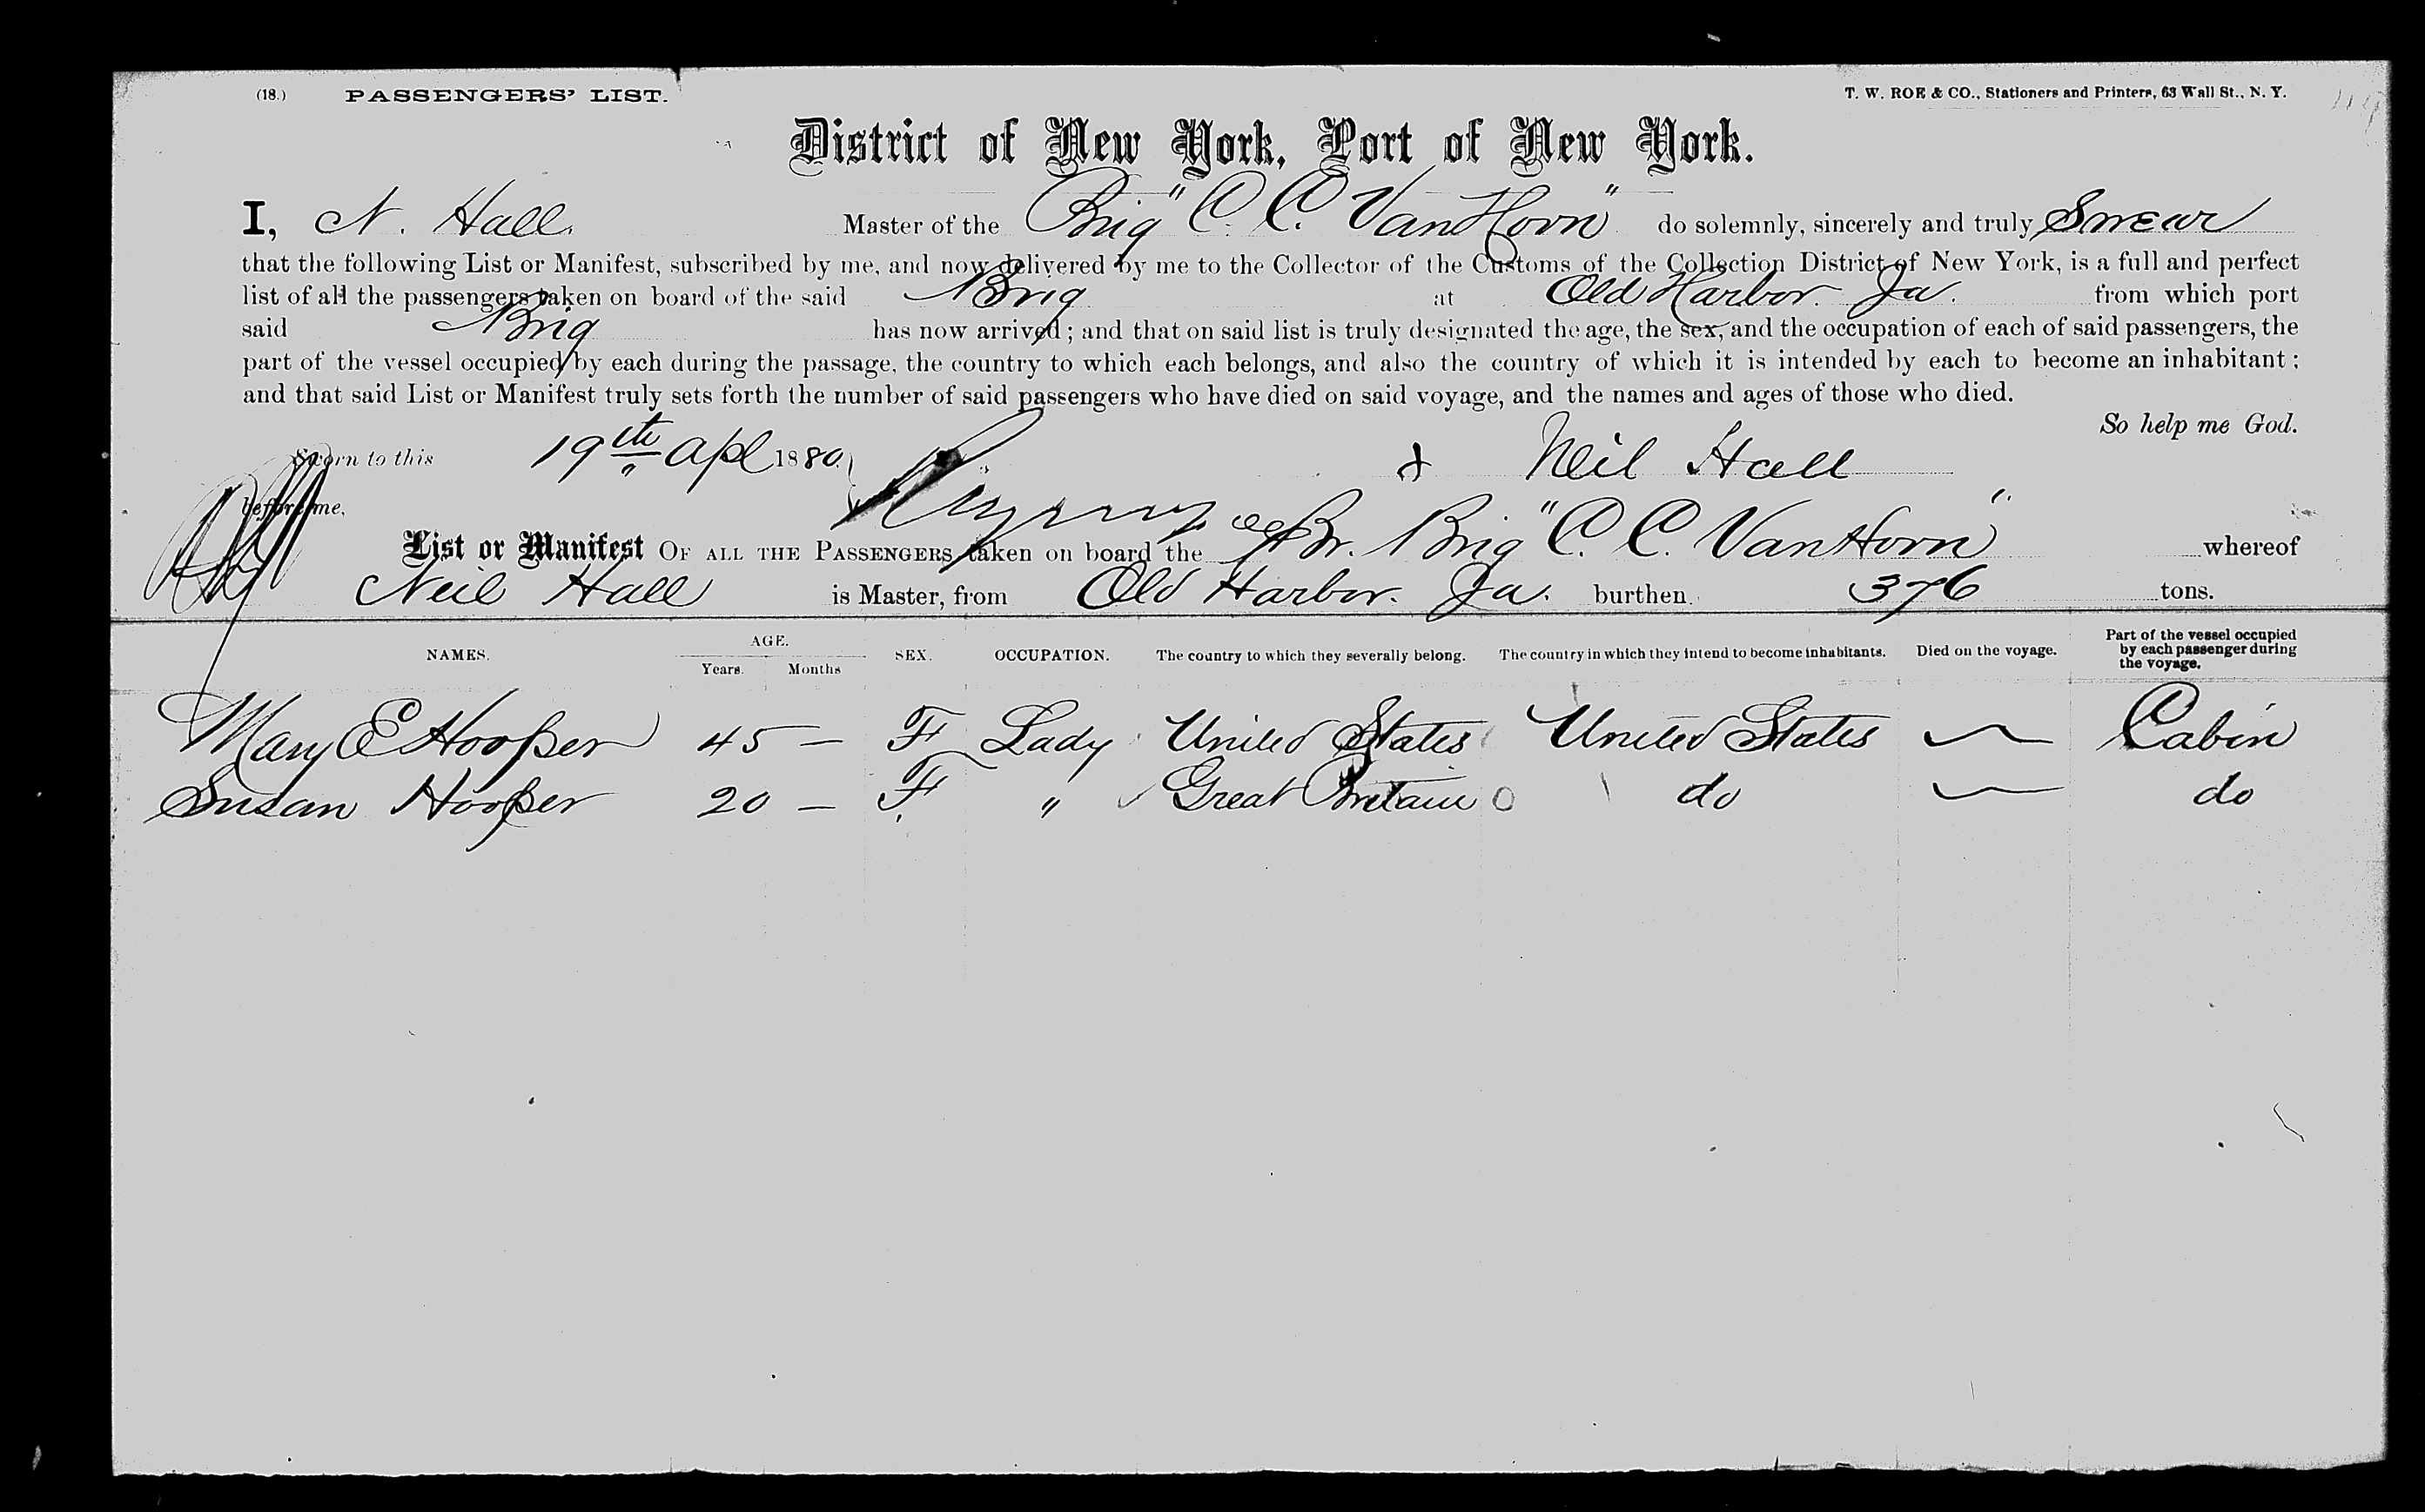 (18.) PASSENGERS' LIST. T. W. ROE & CO., Stationers and Printers, 63 Wall St., N. Y.
District of New York, Port of New York.
I, N. Hall. Master of the Brig "C. C. Van Horn" do solemnly, sincerely and truly Swear
that the following List or Manifest, subscribed by me, and now delivered by me to the Collector of the Customs of the Collection District of New York, is a full and perfect
list of all the passengers taken on board of the said Brig at Old Harbor. Ja. from which port
said Brig has now arrived; and that on said list is truly designated the age, the sex, and the occupation of each of said passengers, the
part of the vessel occupied by each during the passage, the country to which each belongs, and also the country of which it is intended by each to become an inhabitant;
and that said List or Manifest truly sets forth the number of said passengers who have died on said voyage, and the names and ages of those who died.
So help me God.
Sworn to this 19th Apl 1880. Neil Hall
before me.
List or Manifest OF ALL THE PASSENGERS taken on board the Br. Brig "C. C. Van Horn" whereof
Neil Hall is Master, from Old Harbor. Ja. burthen 376 tons.
NAMES. AGE. Years. Months SEX. OCCUPATION. The country to which they severally belong. The country in which they intend to become inhabitants. Died on the voyage. Part of the vessel occupied by each passenger during the voyage.
Mary E Hooper 45 — F Lady United States United States — Cabin
Susan Hooper 20 — F " Great Britain do — do